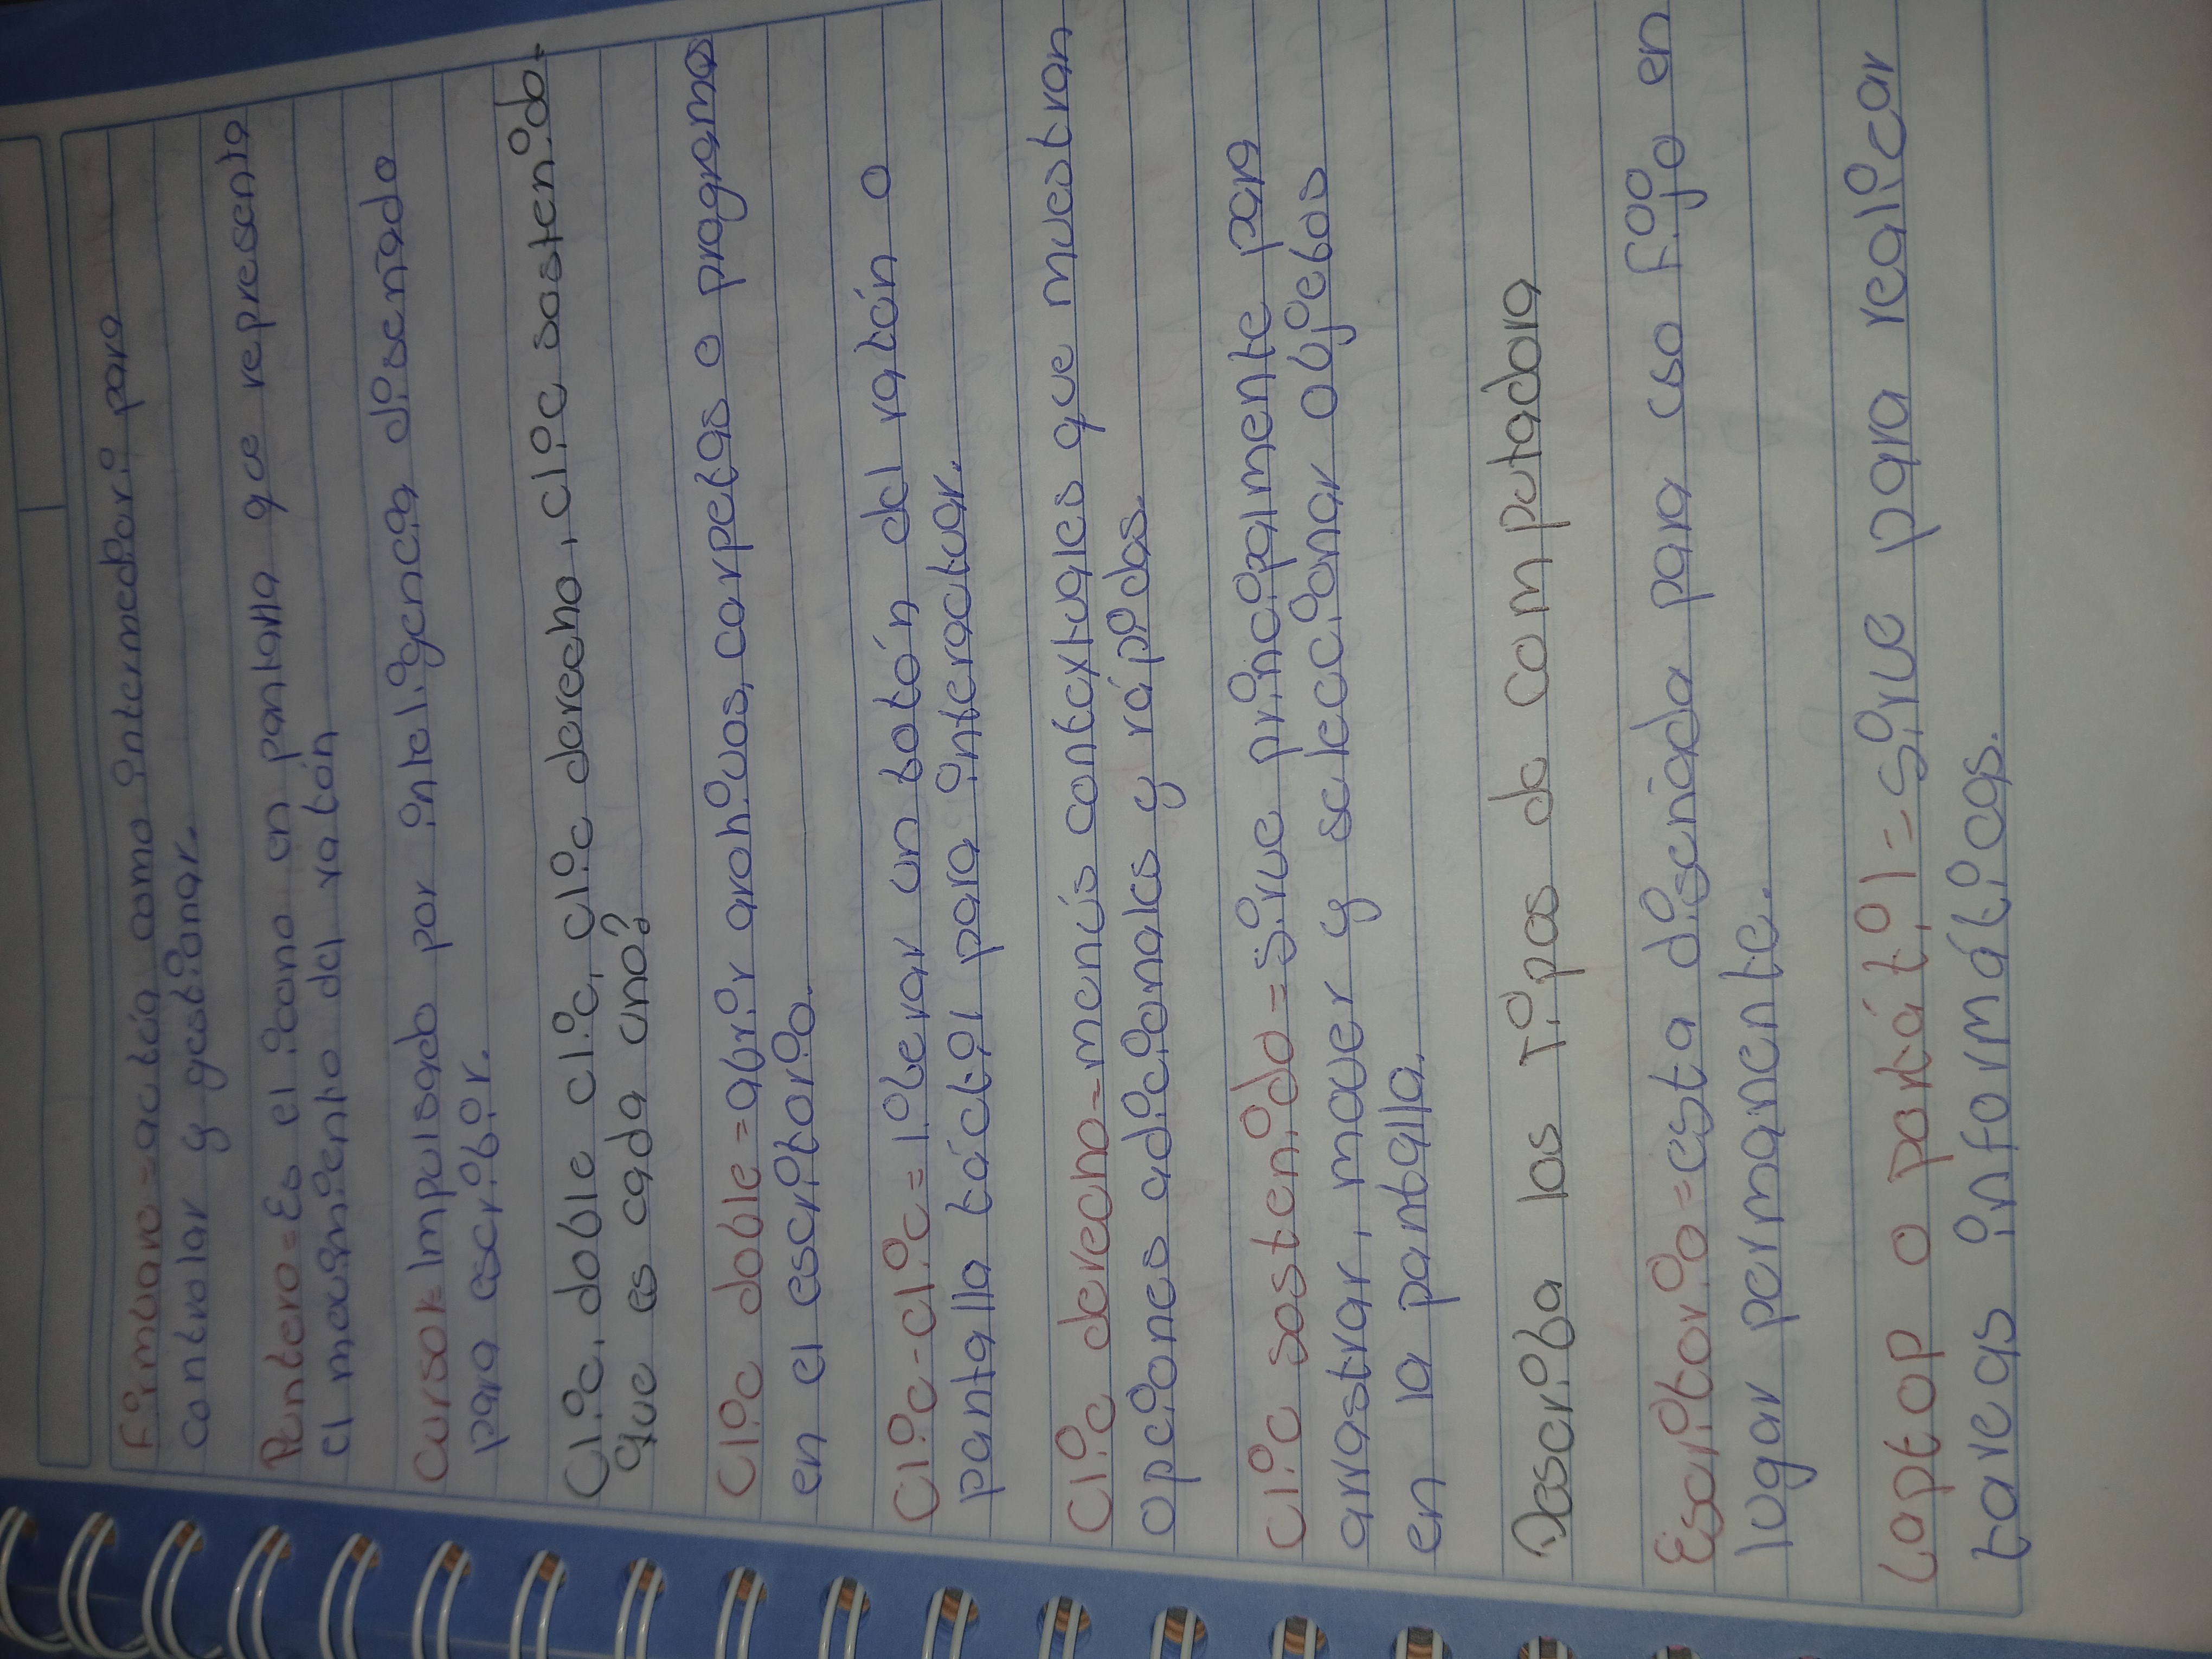 Firmware = actúa como intermediari para
controlar y gestionar.
Puntero = Es el icono en pantalla que representa
el movimiento del ratón
Cursok Impulsado por inteligencia diseñado
para escribir.
Clic, doble clic, clic derecho, clic sostenido.
que es cada uno?
Clic doble = abrir archivos, carpetas o programas
en el escritorio.
Clic-clic = liberar un botón del ratón o
pantalla táctil para interactuar.
Clic derecho = menús contextuales que muestran
opciones adicionales y rápidas.
Clic sostenido = sirve principalmente para
arrastrar, mover y seleccionar objetos
en la pantalla.
Describa los Tipos de computadora
Escritorio = esta diseñada para uso fijo en
lugar permanente.
Laptop o portátil = sirve para realicar
tareas informáticas.